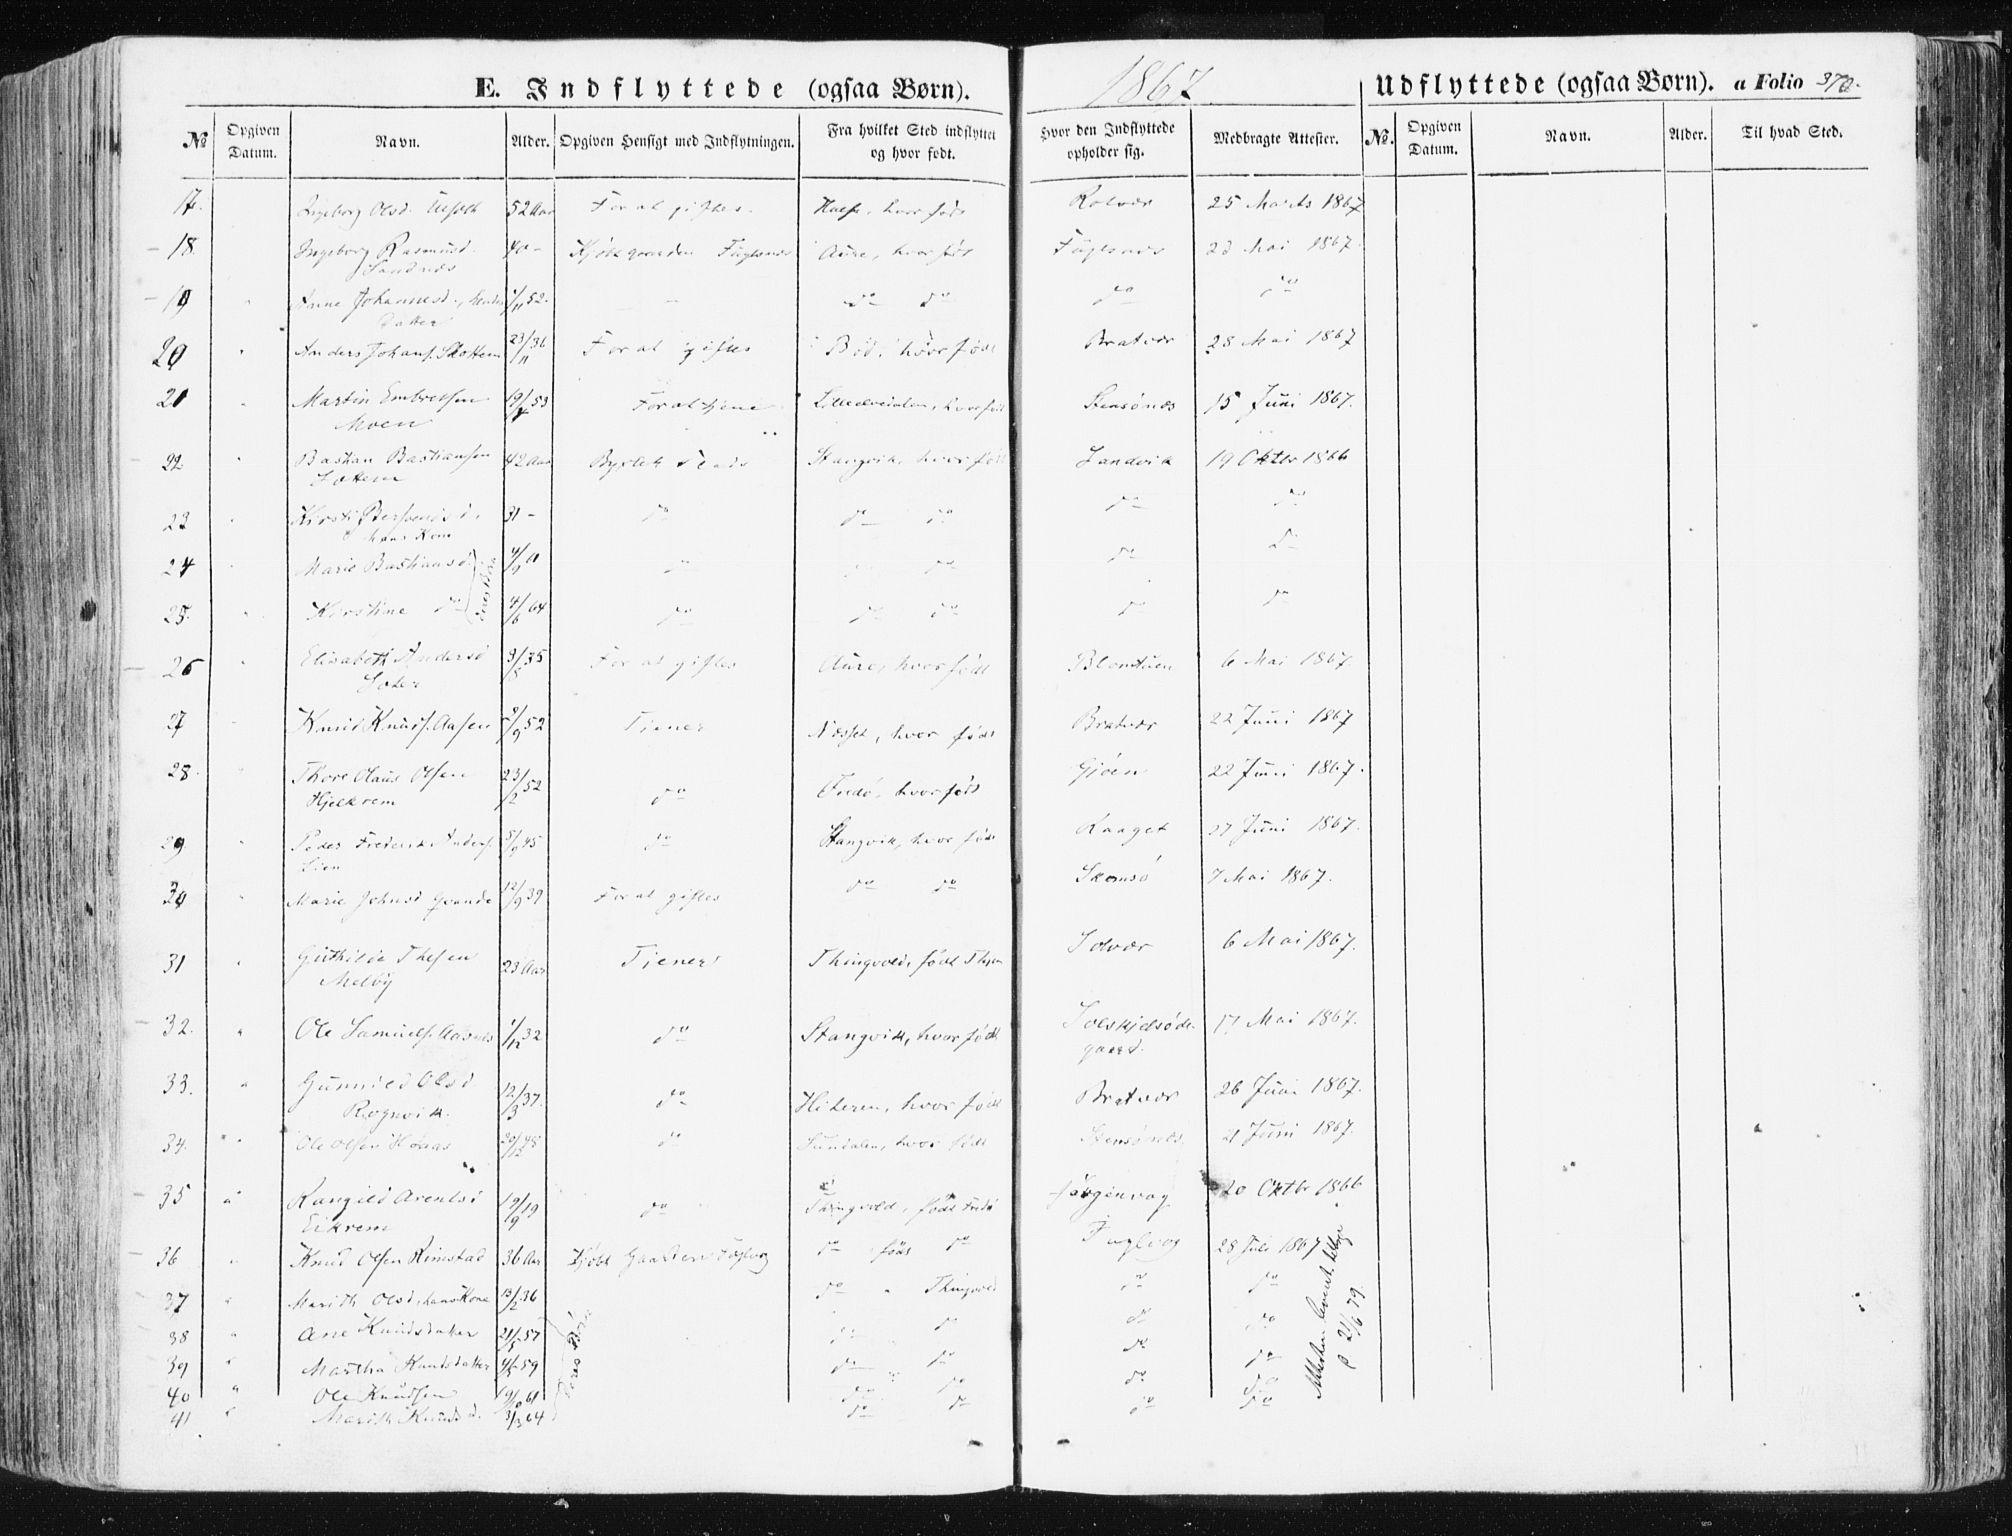 E. Indflyttede (ogsaa Børn).
1867
Udflyttede (ogsaa Børn). a Folio 370.
№ Opgiven Datum. Navn. Alder. Opgiven Hensigt med Indflytningen. Fra hvilket Sted indflyttet og hvor født. Hvor den Indflyttede opholder sig. Medbragte Attester. №. Opgiven Datum. Navn. Alder. Til hvad Sted.
17. Ingeborg Olsd. 52 Aar For at giftes. Halse, hvor født 25 Marts 1867
18. Ingeborg Rasmusd. Sandnæs 40 - Kjøbt gaarden Fuglsnæs Aure, hvor født Fuglsnæs 23 Mai 1867.
19 " Anne Johannesd., hendes Datter 1/11 52. — do do do do
20 " Anders Johans. Skottem 23/11 36 For at giftes Bød, hvor født Bratvær 28 Mai 1867
21 " Martin Embretsen Moen 19/4 53 For at tjene Lilledvedalen, hvor født Stensönæs 15 Juni 1867.
22 " Bastian Bastiansen Sottem 42 Aar Byxlet Plads Stangvik, hvor født Sandvik 19 Oktbr 1866
23 " Kirsti hans Kone 31 - do do do do do
24 " Marie Bastiansd. do do do do do
25. " Kirstine do 4/6 64 do do do do do
deres Børn
26 " Elisabeth Andersd 9/5 35 For at giftes Aure, hvor født 6 Mai 1867.
27 " Knud Knuds. Aasen 5/9 52 Tjener Næsset, hvor født Bratvær 22 Juni 1867
28. " Thore Olaus Olsen Hjelkrem 23/2 52 do Fredø, hvor født Gjøen 22 Juni 1867.
29 " Peder Frederik Anders. Lien 5/9 45 do Stangvik, hvor født 27 Juni 1867.
30 " Marie Johnsd Qvande 12/9 39 For at giftes do do Skomsö 7 Mai 1867.
31 " Guthilde Thesen Melby 23 Aar Tjener Thingvold, født 6 Mai 1867.
32. " Ole Samuels. Aasnes 1/12 32 do Stangvik, hvor født Solskjelsöde gaard. 17 Mai 1867.
33. " Gunnild Olsd Rognvik. 12/3 37. do Hiteren, hvor født Bratvær 26 Juni 1867.
34. " Ole Olsen Hoaas 20/12 48 do Sundalen, hvor født Stensönæs 21 Juni 1867.
35 " Rangild Arentsd Eikrem 19/9 19 do Thingvold, født Fredö Jørgenvag 20 Oktbr 1866
36 " Knud Olsen Rimstad 36 Aar Kjøbt Gaarden Fuglvog do født do Fuglvog 28 Juli 1867
37 " Marith Olsd, hans Kone 13/2 36 do " Thingvold do do
38 " Ane Knudsdatter 21/5 57 do do do do
39 " Martha Knudsdatter 4/5 59 do do do do
40 " Ole Knudsen 19/10 61 do do do do
41 " Marith Knudsd. 3/3 64 do do do do
deres Børn
Attesten levert tilbage
p 21/6 79.